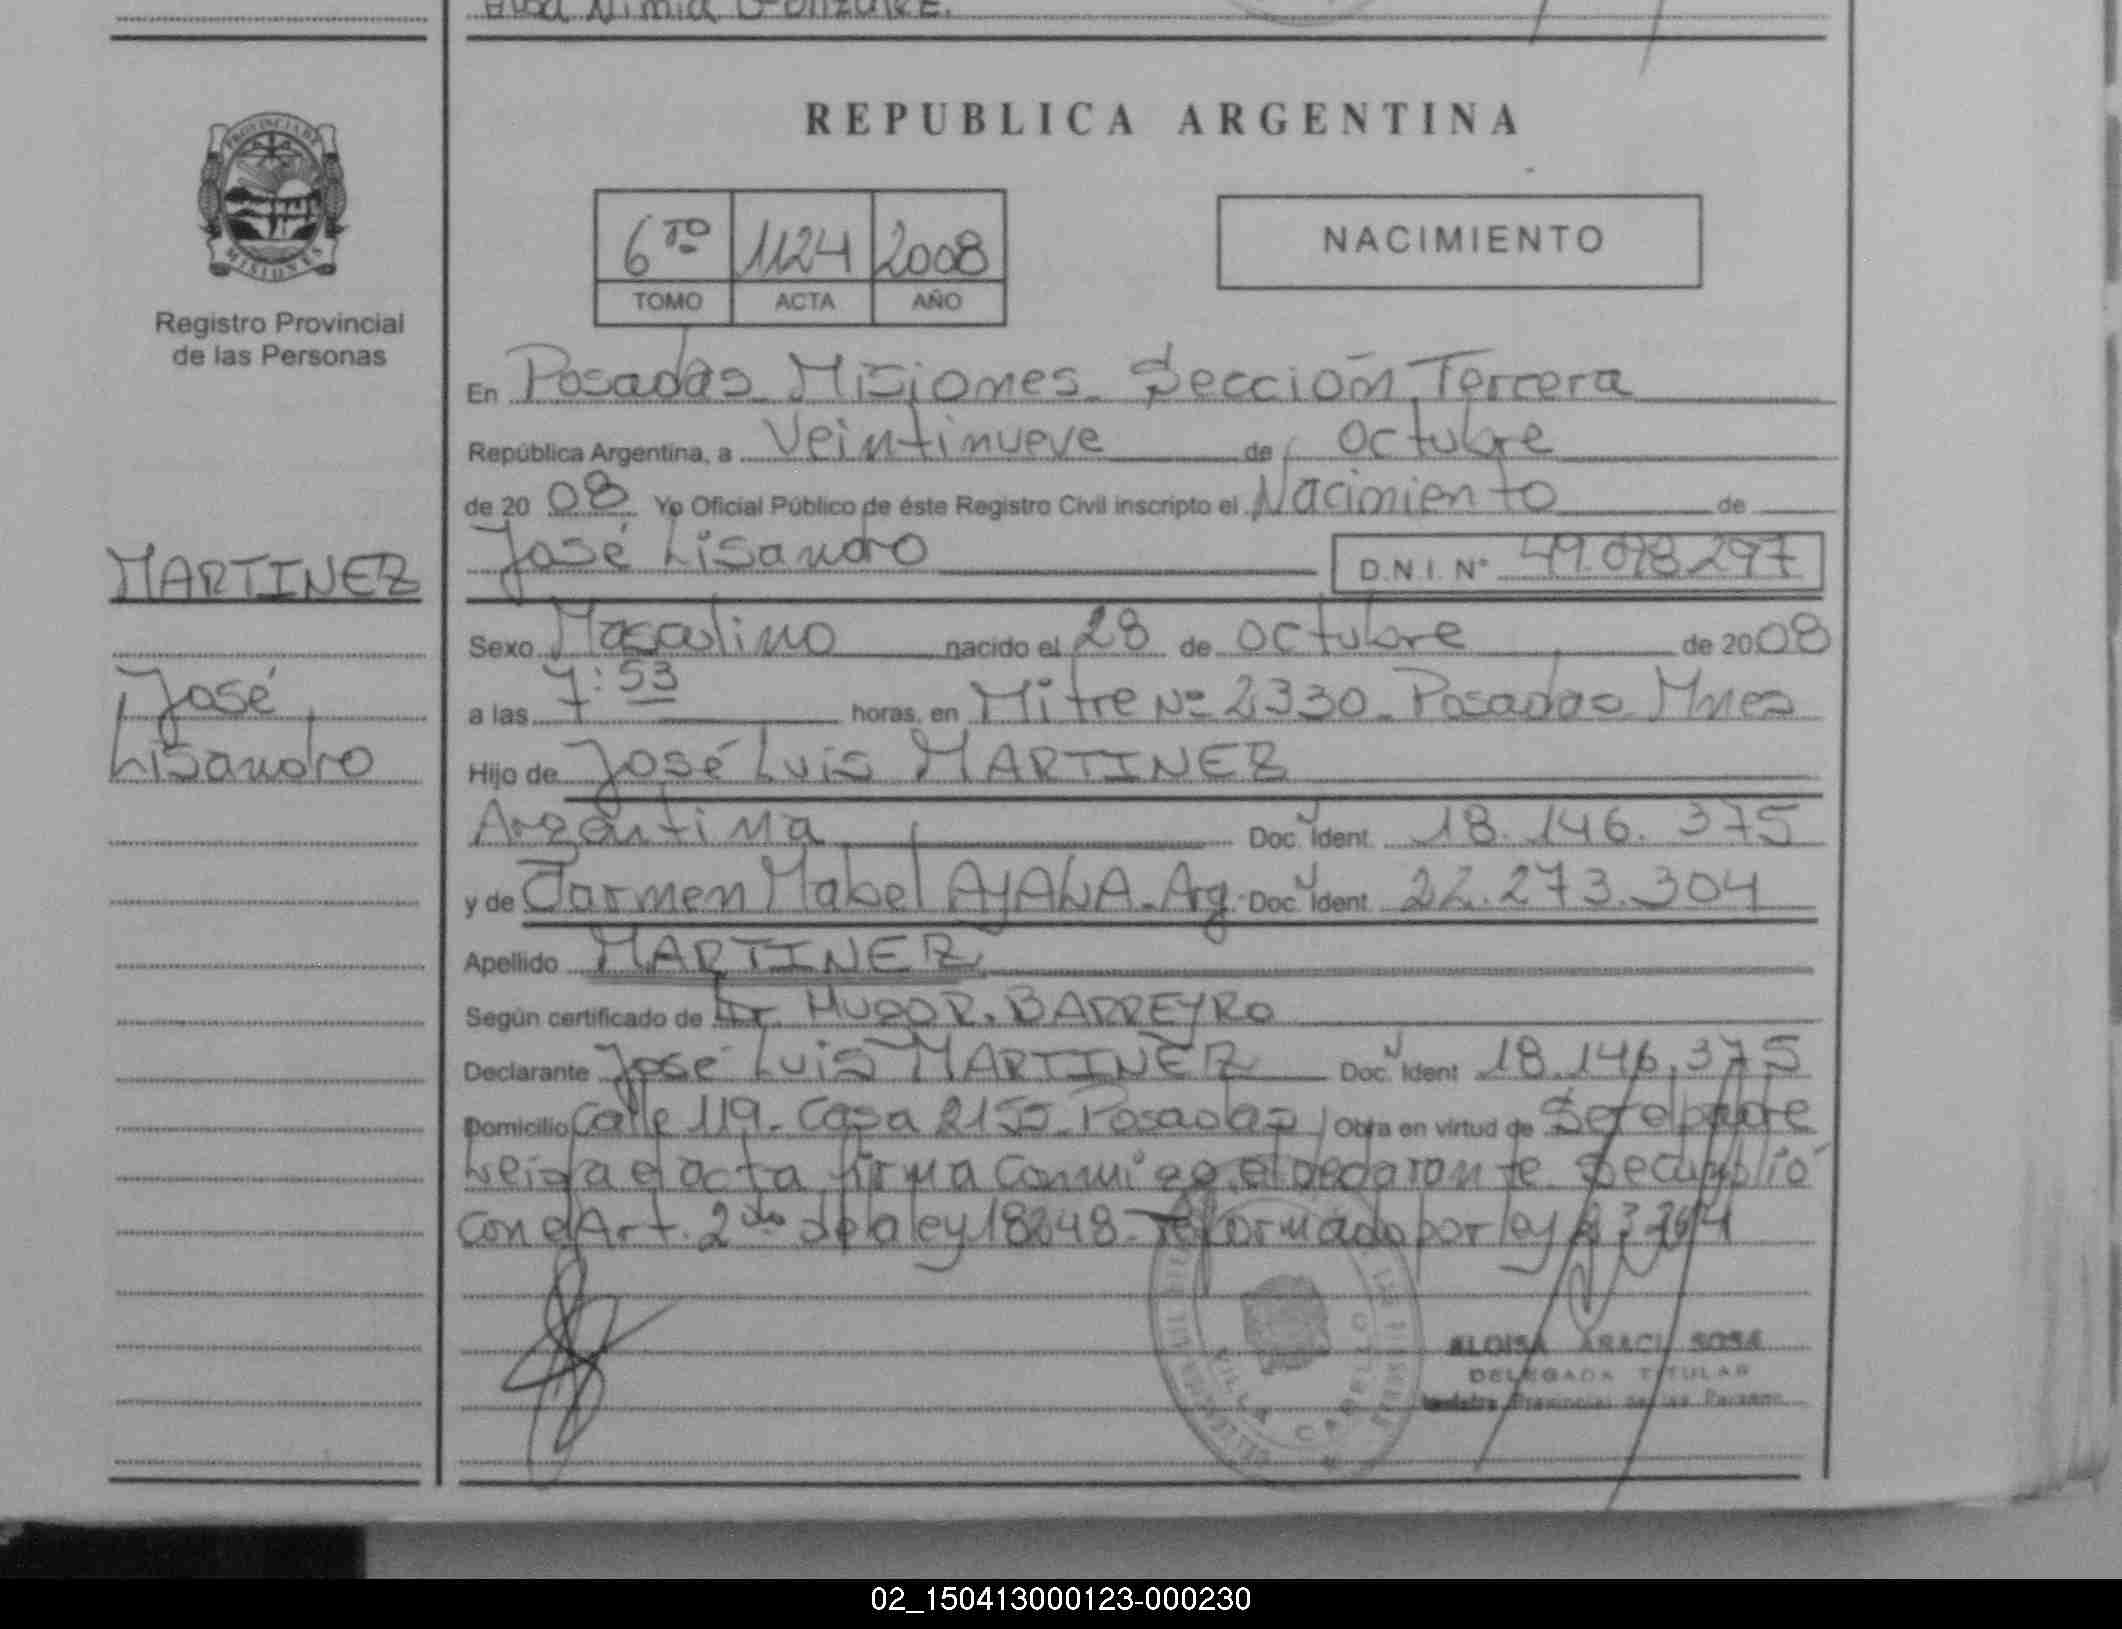 Alba Nimia González.
REPUBLICA ARGENTINA
PROVINCIA DE
MISIONES
Registro Provincial
de las Personas
6TO 1124 2008
TOMO ACTA AÑO
NACIMIENTO
En Posadas Misiones Sección Tercera
República Argentina, a Veintinueve de Octubre
de 2008 Yo Oficial Público de éste Registro Civil inscripto el Nacimiento de
José Lisandro D.N.I. Nº 49.078.297
MARTINEZ
José
Lisandro
Sexo Masculino nacido el 28 de Octubre de 2008
a las 7:53 horas, en Mitre Nº 2330 Posadas Mnes
Hijo de José Luis MARTINEZ
Argentina Doc. Ident. 18.146.375
y de Carmen Mabel AYALA Arg. Doc. Ident. 22.273.304
Apellido MARTINEZ
Según certificado de Dr. HUGO R. BARREYRO
Declarante José Luis MARTINEZ Doc. Ident 18.146.375
Domicilio Calle 119 - Casa 2155 Posadas Obra en virtud de Ser el padre
Leida el acta firma Conmigo el declarante Se cumplió
con el Art. 2do de la ley 18248 reformado por ley 23264
VILLA CABELLO
ALOISA ARACI SOSA
DELEGADA TITULAR
Provincial de las Personas
02_150413000123-000230